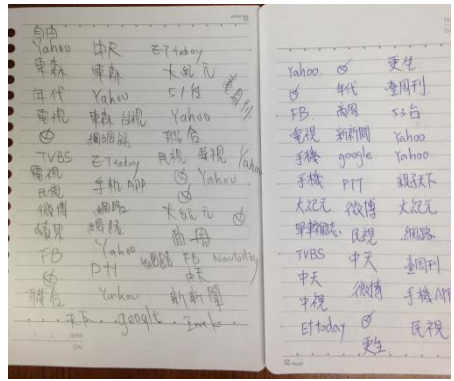 自由
Yahoo 中天 ETtoday
東森 東森 大紀元
年代 Yahoo 51台 壹周刊
電視 東森台視 Yahoo
網網站 聯合
TVBS ETtoday 民視 華視 Yahoo
電視 手机APP Yahoo
民視
微博 網路 大紀元
蘋果 網路
FB Yahoo 網路 FB Nowtoday
PTT 中天
聯合 Yahoo 新新聞
天下 google Ink
Yahoo 更生
年代 壹周刊
FB 商周 53台
電視 新新聞 Yahoo
手機 google Yahoo
手機 PTT 親子天下
大紀元 微博 大紀元
單車雜誌 民視 網路
TVBS 中天 壹周刊
中天
中視 微博 手機APP
ETtoday 民視
更生